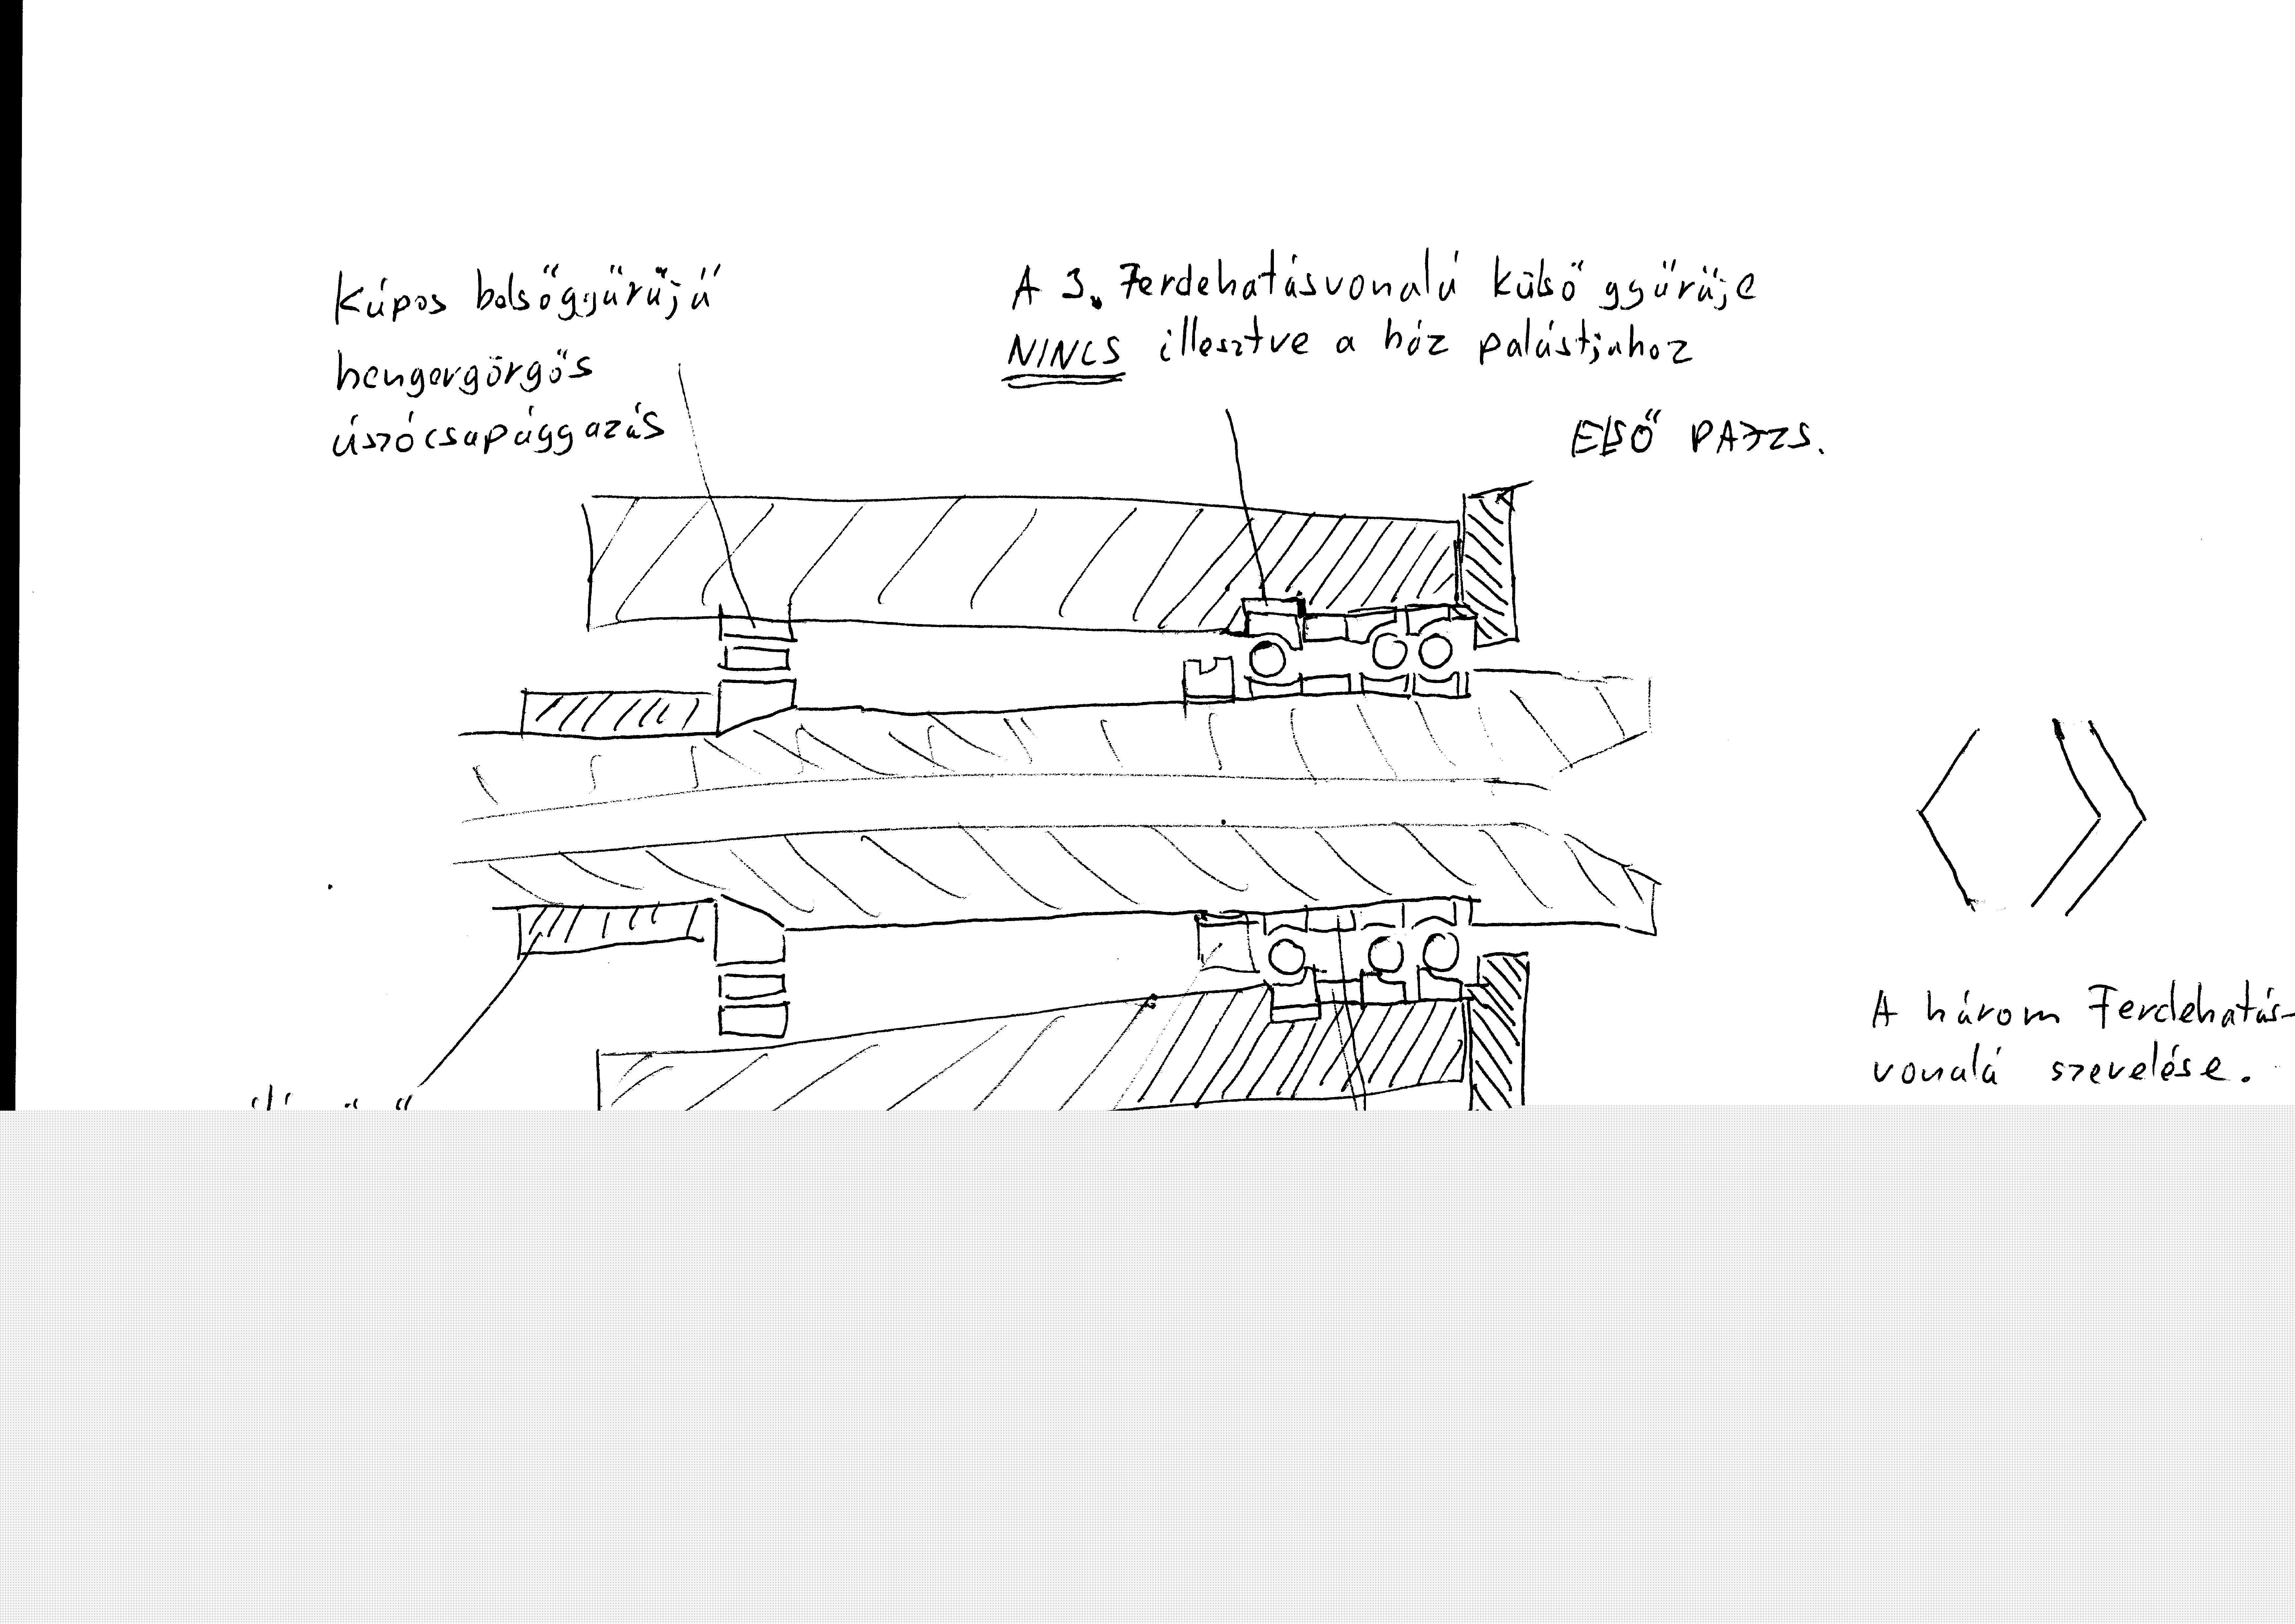 Kúpos belsőgyűrűjű
hengergörgős
úszócsapággazás
A 3. Ferdehatásvonalú külső gyűrűje
NINCS illesztve a ház palástjához
ELSŐ PAJZS.
A három Ferdehatás-
vonalú szerelése.